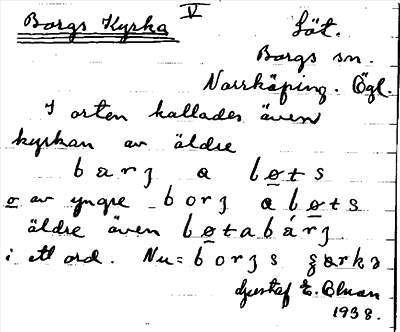 Borgs Kyrka V Löt.
Borgs sn.
Norrköping. Ögl.
I orten kallades även
kyrkan av äldre
barʒ a løts
o av yngre borʒ a løts
äldre även løtabárʒ
i ett ord. Nu = borʒs
Gustaf E. Bluan
1938.